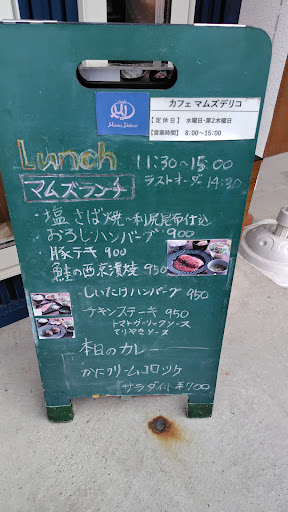 Mam's Delico
カフェ マムズデリコ
【定休日】 水曜日・第2木曜日
【営業時間】 8:00～15:00
Lunch 11:30～15:00
マムズランチ ラストオーダー 14:30
・塩さば焼～利尻昆布仕込
・おろしハンバーグ 900
・豚テキ 900
・鮭の西京漬焼 950
・しいたけハンバーグ 950
・チキンステーキ 950
トマトガーリックソース
てりやきソース
本日のカレー
かにクリームコロッケ
サラダ付 ¥700